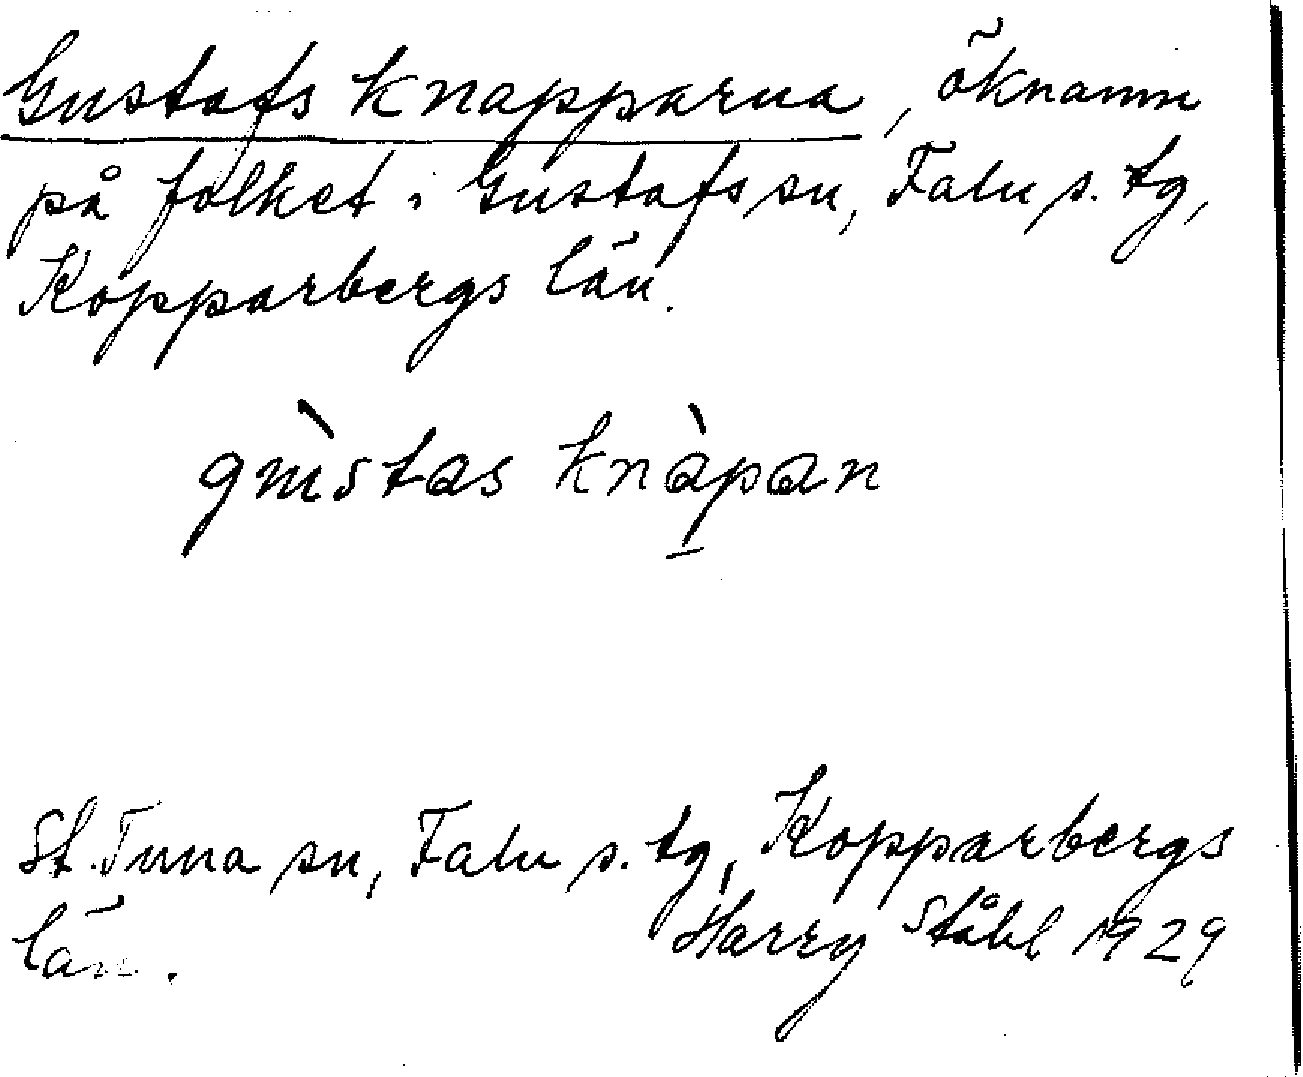 Gustafs knapparna, öknamn
på folket i Gustafs sn, Falu s. tg,
Kopparbergs län.
gùstas knàpan
St. Tuna sn, Falu s. tg, Kopparbergs
län. Harry Ståhl 1929